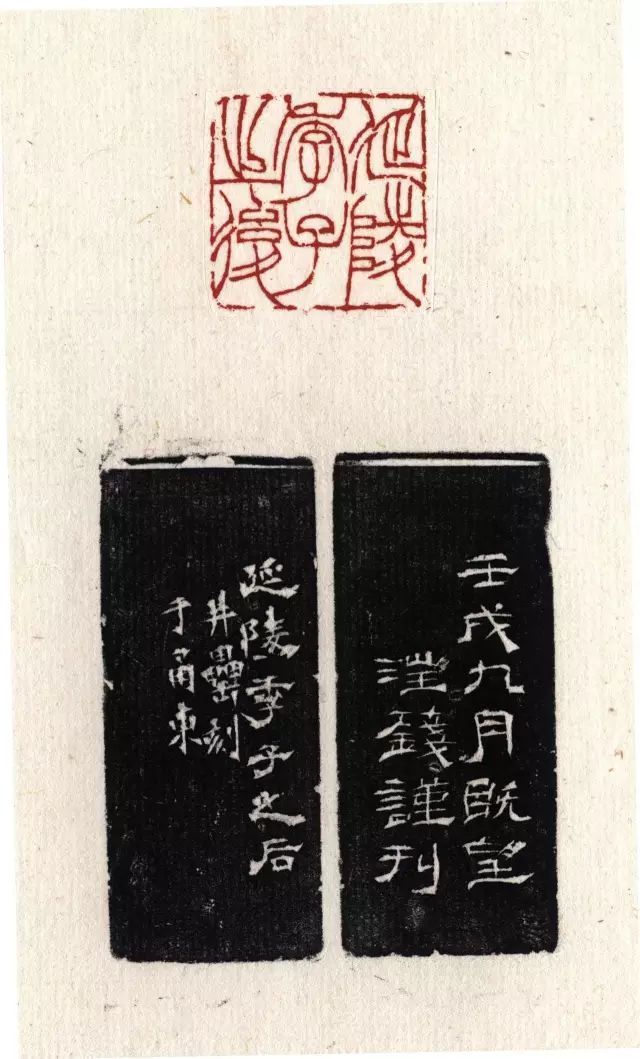 延陵
季子
之後
壬戌九月既望
錢謹刊
延陵季子之后
井罍刻
于甬東